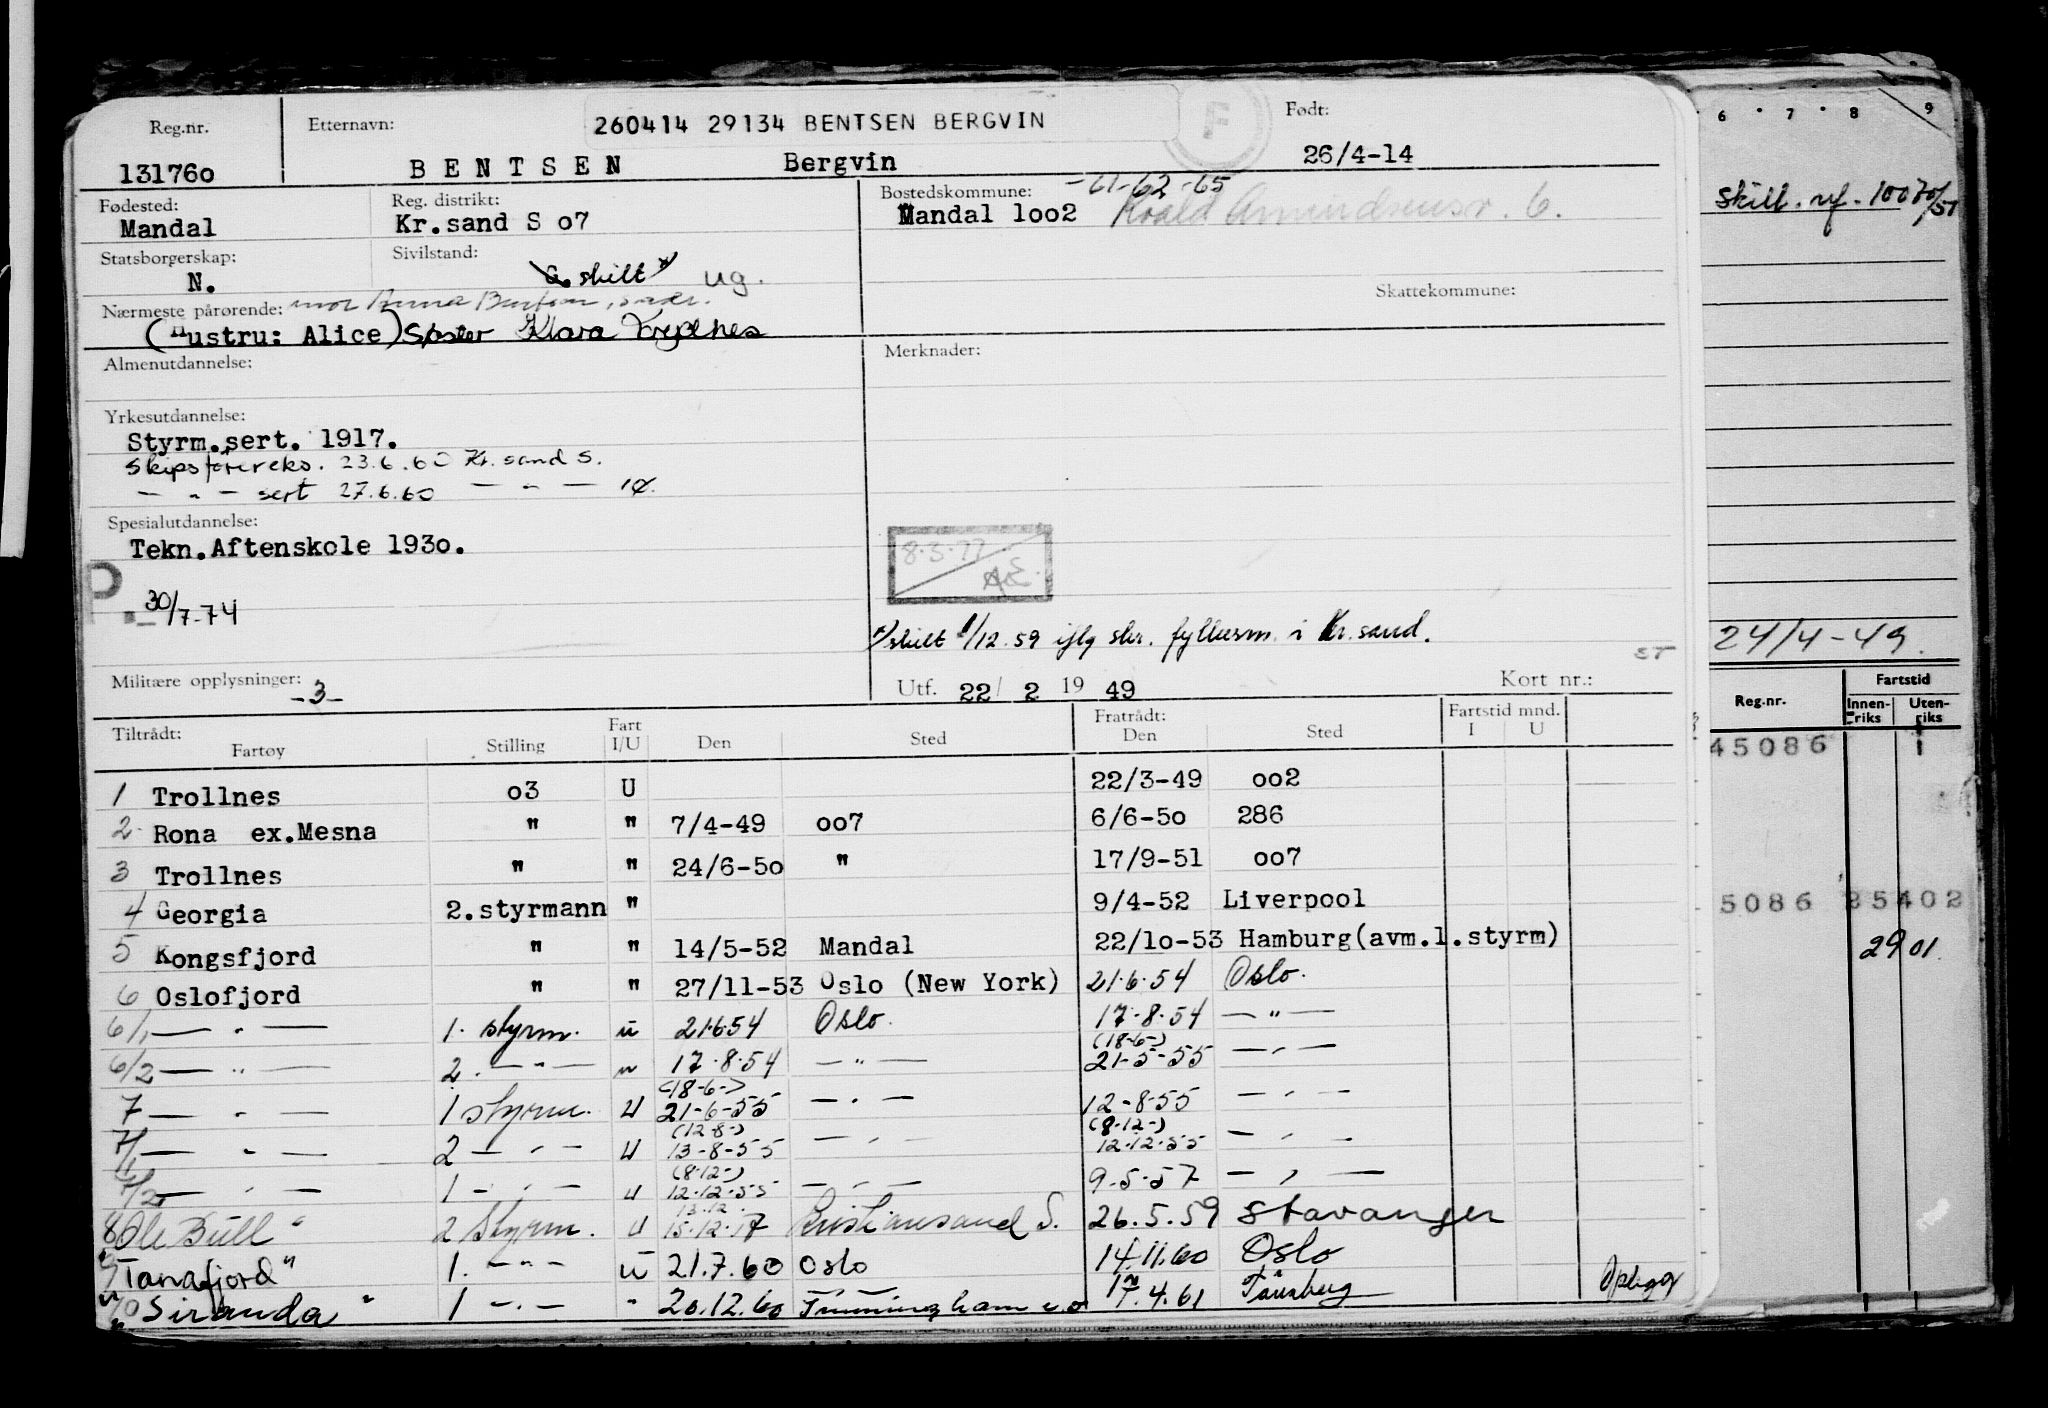 Reg.nr. Etternavn: 260414 29134 BENTSEN BERGVIN F Født:
131760 BENTSEN Bergvin 26/4-14
Fødested: Reg. distrikt: Bostedskommune: -61-62-65
Mandal Kr.sand S o7 Mandal 1oo2 Roald Amundsensv. 6.
Statsborgerskap: Sivilstand:
N. G. skilt x) ug.
Skattekommune:
Nærmeste pårørende: mor Anna Bentsen,
(Hustru: Alice) Søster Klara
Almenutdannelse: Merknader:
Yrkesutdannelse:
Styrm.sert. 1917.
Skipsførereks. 23.6.60 Kr. sand S.
— " — sert 27.6.60 — " —
Spesialutdannelse:
Tekn.Aftenskole 193o.
8.3.77
P. 30/7-74
x) skilt 1/12.59 iflg skr. fylkesm. i Kr.sand.
Militære opplysninger: -3- Utf. 22/ 2 19 49 Kort nr.:
Tiltrådt: Fart Fratrådt: Fartstid mnd.
Fartøy Stilling I/U Den Sted Den Sted I U
1 Trollnes o3 U 22/3-49 oo2
2 Rona ex.Mesna " " 7/4-49 oo7 6/6-5o 286
3 Trollnes " " 24/6-5o " 17/9-51 oo7
4 Georgia 2.styrmann " 9/4-52 Liverpool
5 Kongsfjord " " 14/5-52 Mandal 22/1o-53 Hamburg(avm.1.styrm)
6 Oslofjord " " 27/11-53 Oslo (New York) 21.6.54 Oslo.
6/1 — " — 1. styrm. u 21.6.54 Oslo. 17.8.54 — " —
6/2 — " — 2. — " — " 17.8.54 — " — (18-6-) 21-5-55 — " —
7 — " — 1 styrm. U (18-6-) 21-6-55 — " — 12-8-55 — " —
7/1 — " — 2 — " — U (12-8-) 13-8-55 — " — (8-12-) 12.12.55 — " —
7/2 — " — 1 — " — U (8-12-) 12.12.55 — " — 9.5.57 — " —
8 "Ole Bull" 2 Styrm. U 13.12. 15.12.17 Kristiansand S. 26.5.59 Stavanger
9 "Tanafjord" 1. — " — U 21.7.60 Oslo 14.11.60 Oslo
10 "Siranda" 1 — " — " 20.12.60 17.4.61 Tønsberg
6 7 8 9
Skill. nf. 10070/51
24/4-49.
Reg.nr. Fartstid
Innen-riks Uten-riks
45086 1
5086 25402
29 01